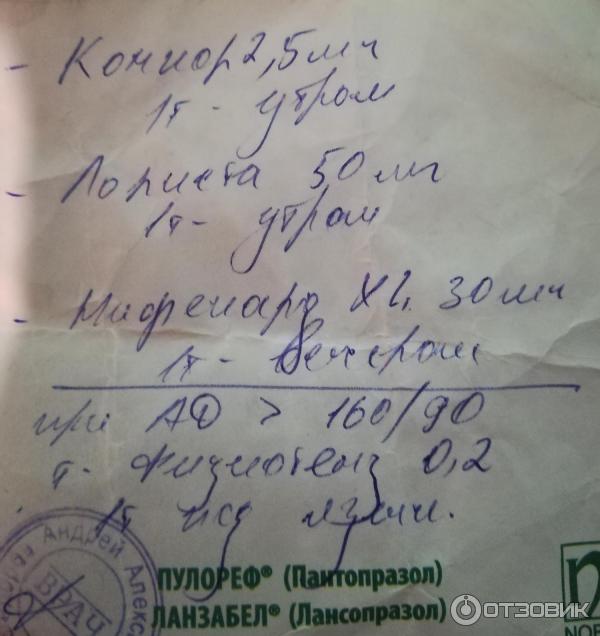 - Конкор 2,5 мг
1т - утром
- Лориста 50 мг
1т - утром
- Нифекард XL 30 мг
1т - вечером
при АД > 160/90
т. Физиотенз 0,2
1т под язык.
Андрей Алекс
ВРАЧ
ПУЛОРЕФ® (Пантопразол)
ЛАНЗАБЕЛ® (Лансопразол)
NOB
ОТЗОВИК